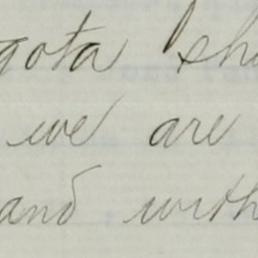 gota sh
we are
and with